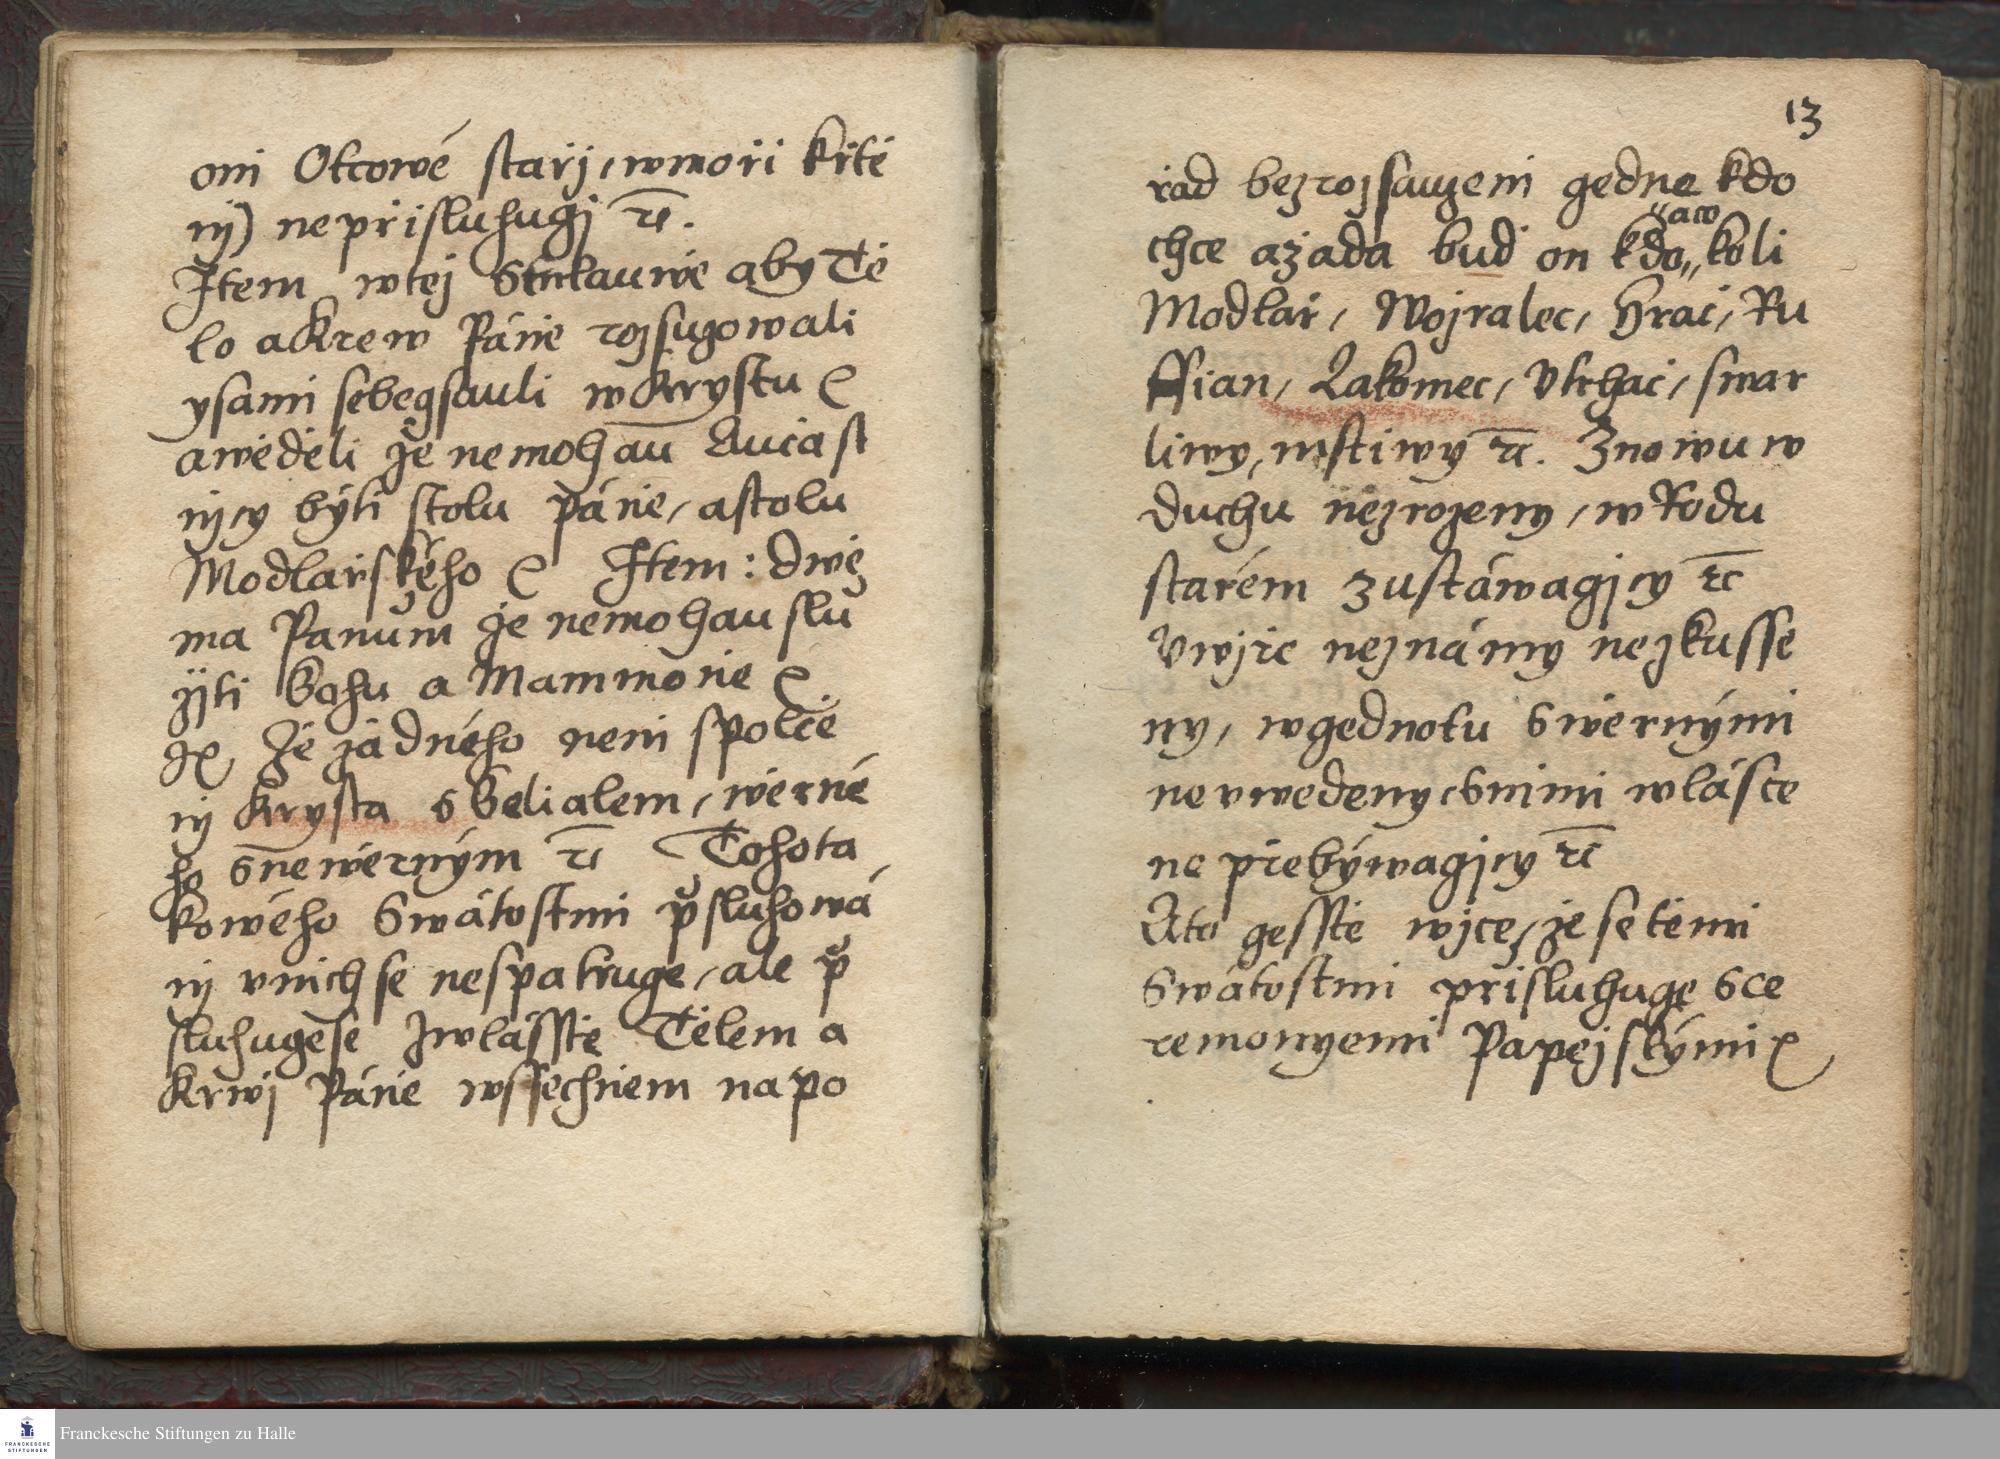 oni Otcowé starj, w mori krtě
nj) nepřisluhugj rc.
Item w tej Smlauwě aby Tě
lo a Krew Páně rozsuzowali
y sami sebe gsauli w Krystu rc
a wěděli že nemohau Aučast
njcy býti stolu Páně, a stolu
Modlařského rc Item: dwě
ma Panům že nemohau slu
žjti Bohu a Mammoně rc
Že žádného neni spolče
nj Krysta s Belialem, wěrné
ho s newěrným rc Tohota
kowého Swátostmi přsluhowá
nj v nich se nespatřuge, ale př
sluhuge se zwlásstě Tělem a
Krwj Páně wssechněm napo
13
řad bez rozsauzeni gedne kdo
chce a žada bud on kdo„koli
„aw
Modlař, Wožralec, Hrač, Ru
ffian, Lakomec, Vtrhač, swar
liwy, mstiwy rc. Znowu w
duchu nezrozeny, w Rodu
starém zustáwagjcy rc
V wjře neznámy nezkusse
ny, w gednotu s wěrnými
ne vwedeny, s nimi w lásce
ne přebýwagjcy rc
A to gesstě wjce, že se těmi
Swátostmi přisluhuge s Ce
remonyemi Papežskými rc
Franckesche Stiftungen zu Halle
FRANCKESCHE
STIFTUNGEN